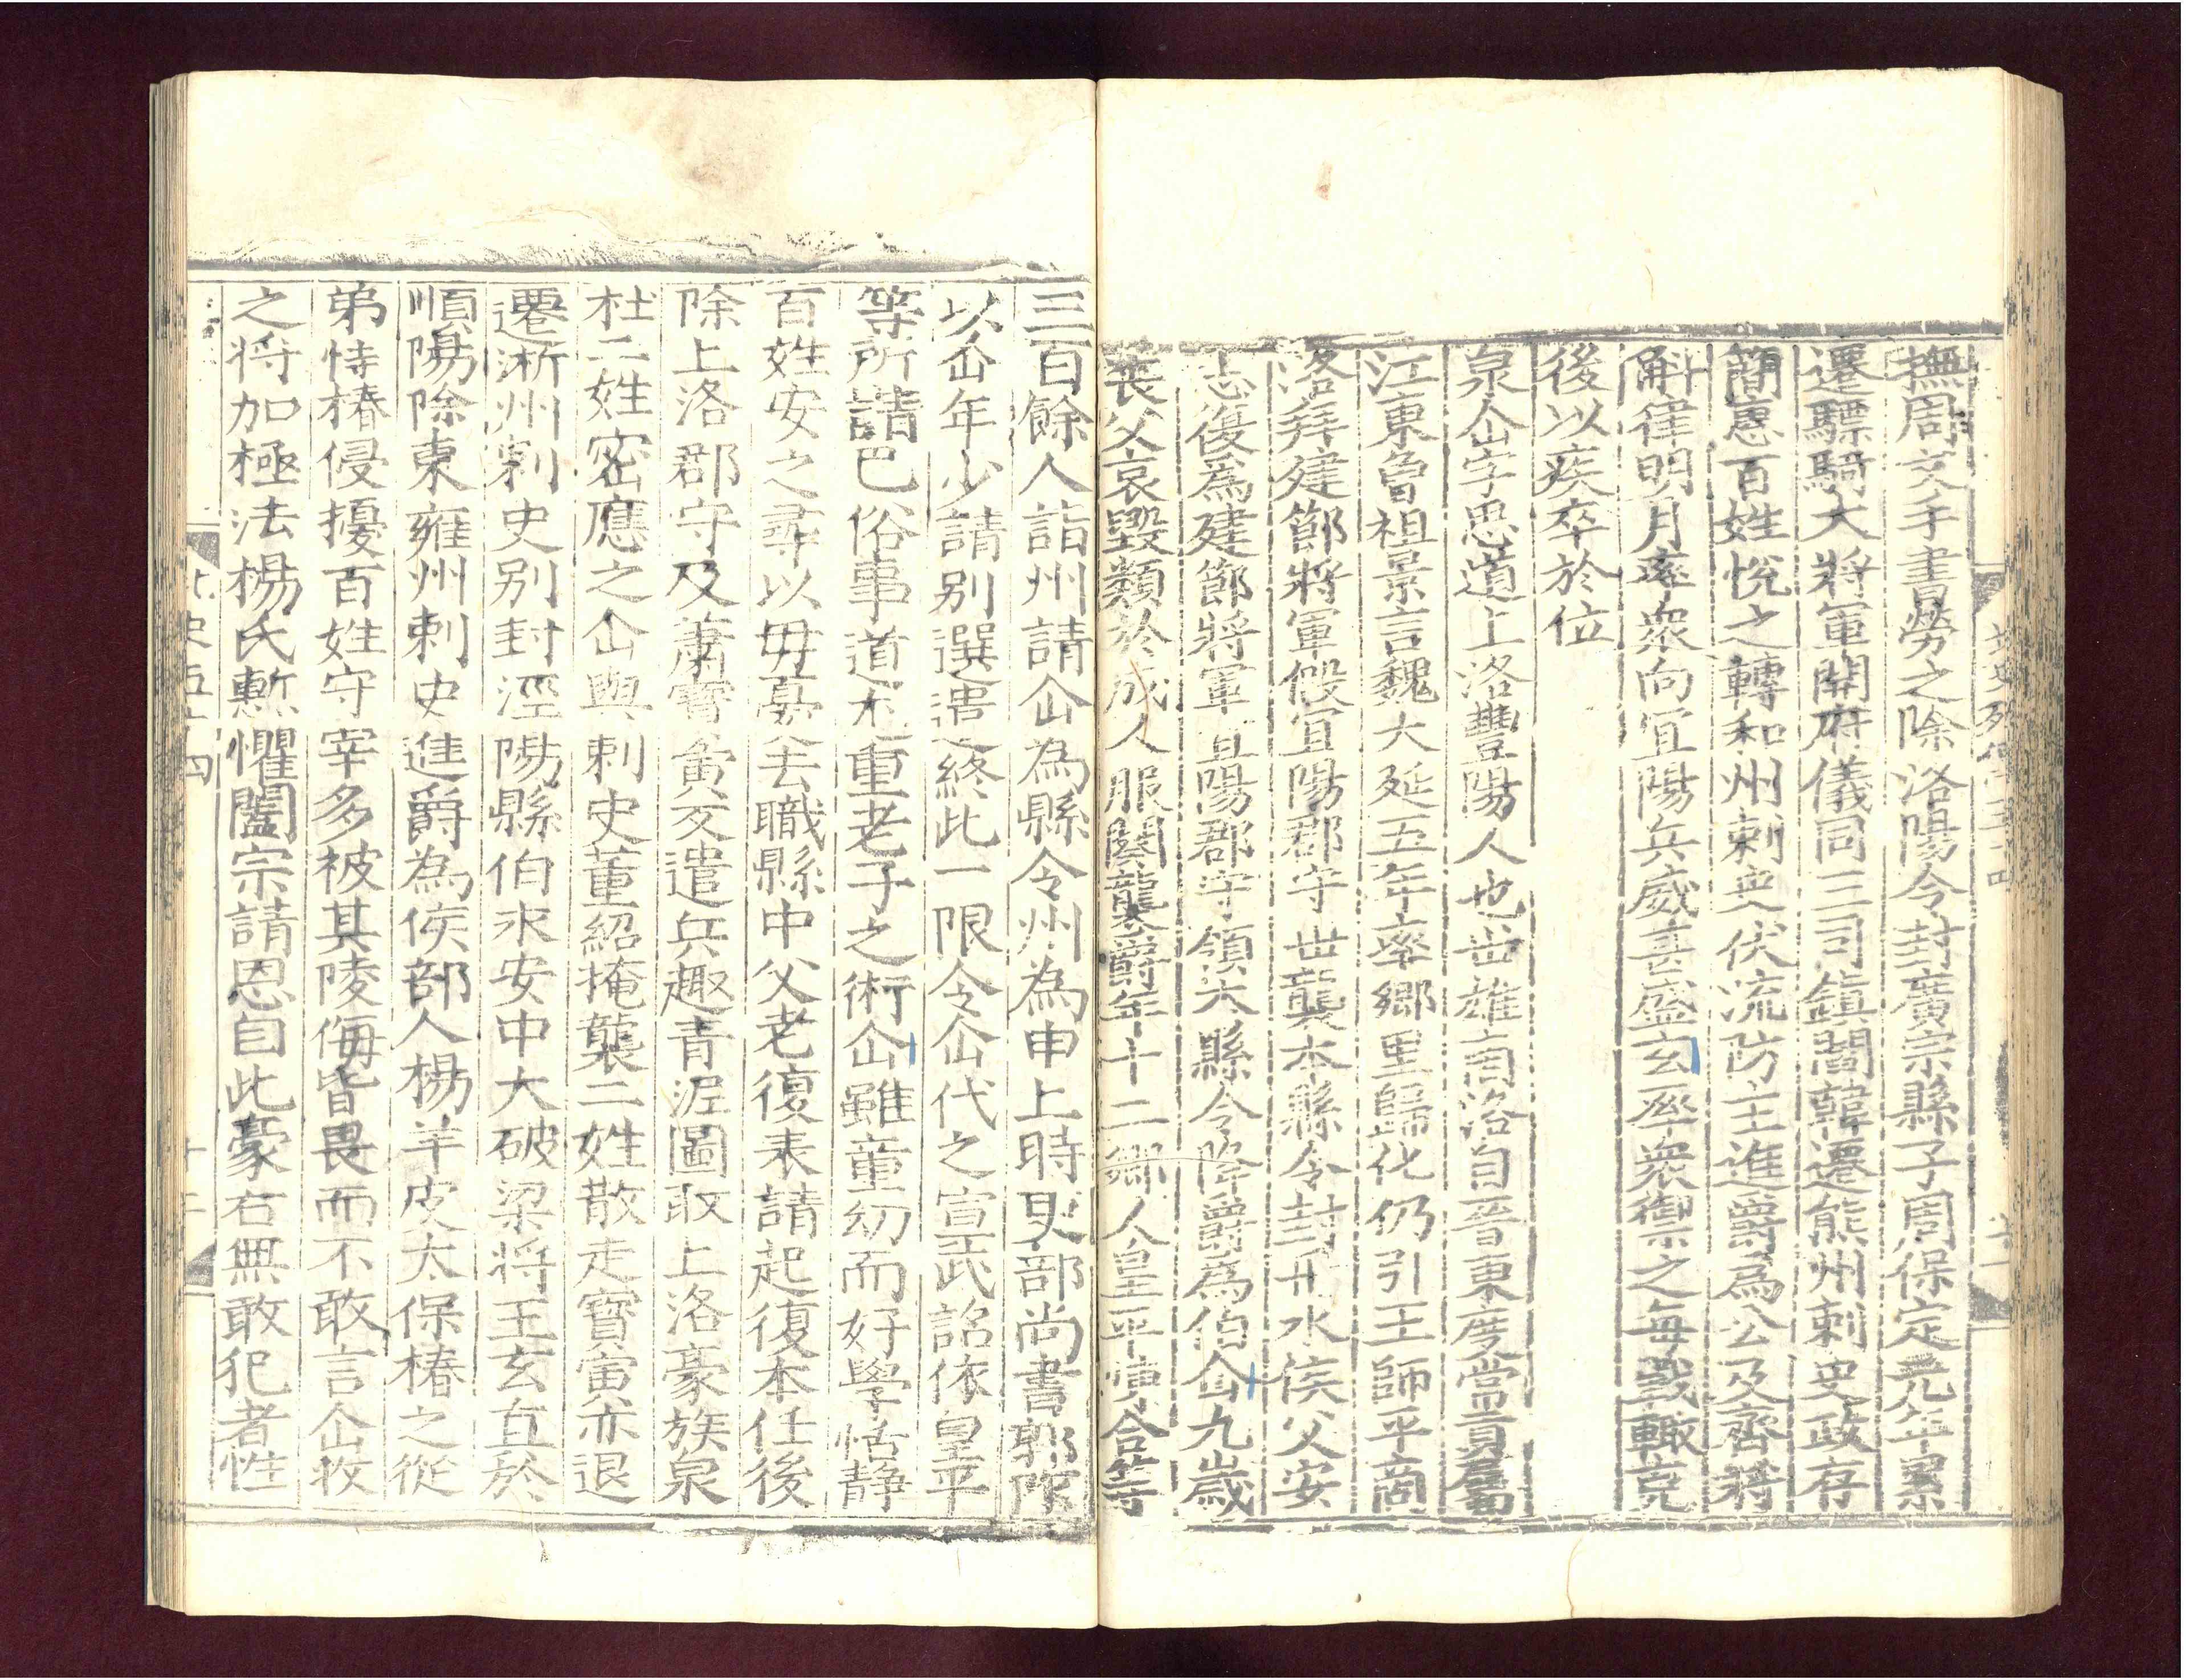 撫周文手書勞之除洛陽令封廣宗縣子周保定元年累
遷驃騎大將軍開府儀同三司鎮閻韓遷熊州刺史政存
簡惠百姓悅之轉和州刺史伏流防主進爵爲公及齊將
斛律明月率衆向宜陽兵威甚盛玄率衆禦之每戰輒克
後以疾卒於位
泉仚字思道上洛豐陽人也世雄商洛自晉東度常貢屬
江東曾祖景言魏大延五年率鄉里歸化仍引王師平商
洛拜建節將軍假宜陽郡守世襲本縣令封丹水侯父安
志復爲建節將軍宜陽郡守領本縣令降爵爲伯仚九歲
喪父哀毀類於成人服闋襲爵年十二鄉人皇平陳合等
三百餘人詣州請仚爲縣令州爲申上時吏部尚書郭祚
以仚年少請别選遣終此一限令仚代之宣武詔依皇平
等所請巴俗事道尤重老子之術仚雖童幼而好學恬静
百姓安之尋以母憂去職縣中父老復表請起復本任後
除上洛郡守及蕭寶夤反遣兵趣青泥圖取上洛豪族泉
杜二姓密應之仚與刺史董紹掩襲二姓散走寶寅亦退
遷淅州刺史别封涇陽縣伯永安中大破梁将王玄真於
順陽除東雍州刺史進爵爲侯部人楊羊皮太保椿之從
弟恃椿侵擾百姓守宰多被其陵侮皆畏而不敢言仚收
之将加極法楊氏慙懼闔宗請恩自此豪右無敢犯者性